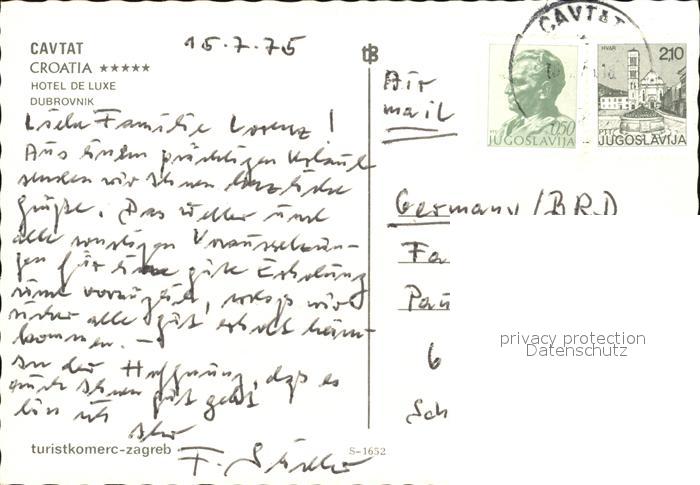 15.7.75
CAVTAT
CROATIA ★★★★★
HOTEL DE LUXE
DUBROVNIK
Liebe Familie Lorenz!
Aus einem prächtigen Urlaub
senden wir Ihnen herzliche
Grüße. Das Wetter und
alle sonstigen Voraussetzun-
gen für eine gute Erholung
sind vorzüglich, so daß wir
sicher alle gut erholt heim-
kommen. –
In der Hoffnung, daß es
auch Ihnen gut geht
bin ich
Ihr
F.
turistkomerc-zagreb
S-1652
tB
Air
mail
CAVTAT
0,50
JUGOSLAVIJA
HVAR
2,10
PTT
JUGOSLAVIJA
Germany/BRD
Fa
Pau
6
Sch
privacy protection
Datenschutz